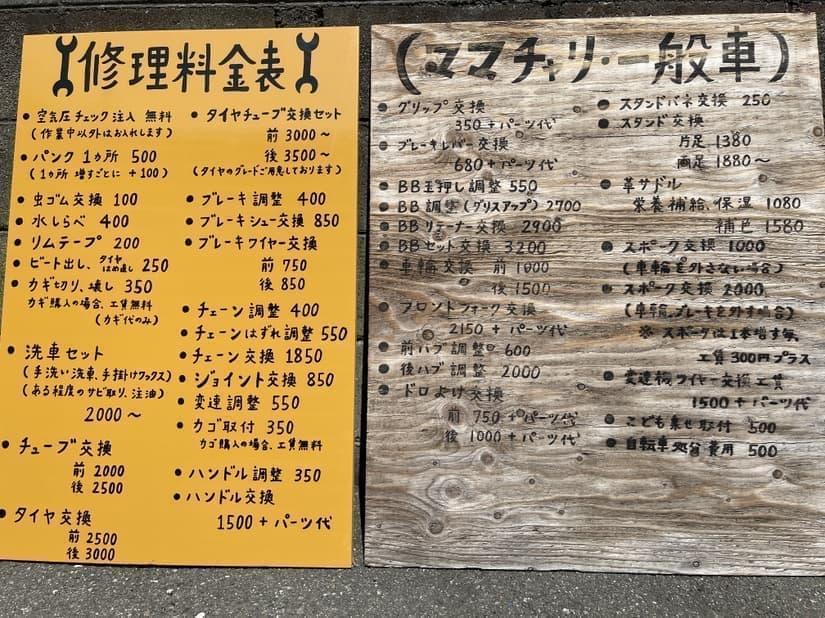 修理料金表
● 空気圧チェック 注入 無料
(作業中以外はお入れします)
● パンク 1ヵ所 500
(1ヵ所 増すごとに +100)
● 虫ゴム交換 100
● 水しらべ 400
● リムテープ 200
● ビート出し、タイヤはめ直し 250
● カギ切り、壊し 350
カギ購入の場合、工賃無料
(カギ代のみ)
● 洗車セット
(手洗い洗車、手掛けワックス)
(ある程度のサビ取り、注油)
2000~
● チューブ交換
前 2000
後 2500
● タイヤ交換
前 2500
後 3000
● タイヤチューブ交換セット
前 3000~
後 3500~
(タイヤのグレードご用意しております)
● ブレーキ調整 400
● ブレーキシュー交換 850
● ブレーキワイヤー交換
前 750
後 850
● チェーン調整 400
● チェーンはずれ調整 550
● チェーン交換 1850
● ジョイント交換 850
● 変速調整 550
● カゴ取付 350
カゴ購入の場合、工賃無料
● ハンドル調整 350
● ハンドル交換
1500+パーツ代
(ママチャリ・一般車)
● グリップ交換
350+パーツ代
● ブレーキレバー交換
680+パーツ代
● BB玉押し調整 550
● BB調整(グリスアップ) 2700
● BBリテーナー交換 2900
● BBセット交換 3200
● 車輪交換 前 1000
後 1500
● フロントフォーク交換
2150+パーツ代
● 前ハブ調整 600
● 後ハブ調整 2000
● ドロよけ交換
前 750+パーツ代
後 1000+パーツ代
● スタンドバネ交換 250
● スタンド交換
片足 1380
両足 1880~
● 革サドル
栄養補給、保湿 1080
補色 1580
● スポーク交換 1000
(車輪を外さない場合)
● スポーク交換 2000
(車輪、ブレーキを外す場合)
※ スポークは1本増す毎
工賃300円プラス
● 変速機ワイヤー交換工賃
1500+パーツ代
● こども乗せ取付 500
● 自転車処分費用 500